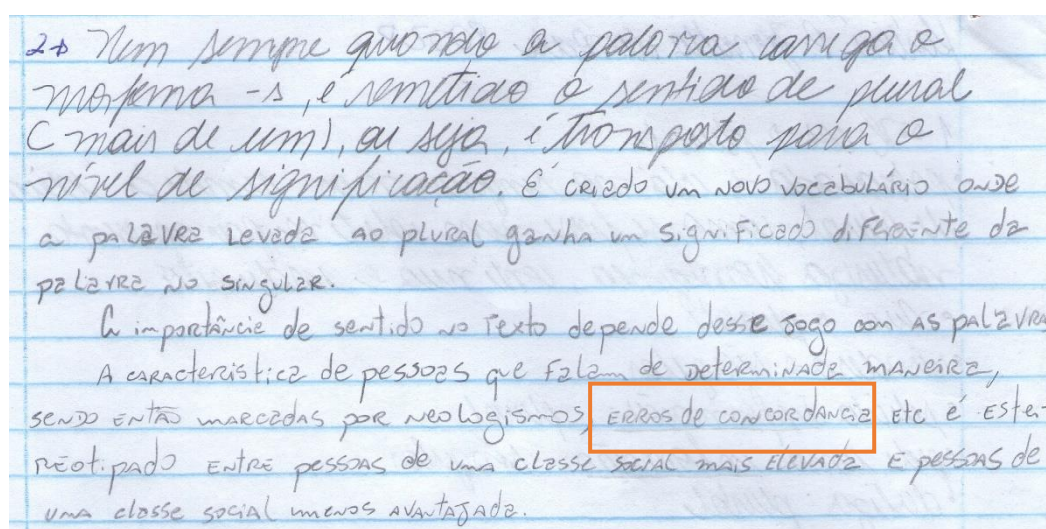 2) Nem sempre quando a palavra carrega o
morfema -s, é remetido o sentido de plural
(mais de um), ou seja, é transposto para o
nível de significação. É criado um novo vocabulário onde
a palavra levada ao plural ganha um significado diferente da
palavra no singular.
A importância de sentido no texto depende desse jogo com as palavra
A característica de pessoas que falam de determinada maneira,
sendo então marcadas por neologismos, erros de concordancia etc é este-
reotipado entre pessoas de uma classe social mais elevada e pessoas de
uma classe social menos avantajada.